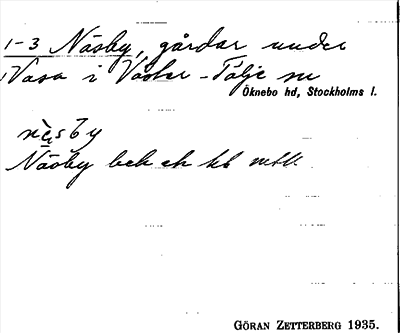 1-3 Näsby, gårdar under
Vasa i Väster-Tälje sn
Öknebo hd, Stockholms l.
nè̱sby
Näsby beh
GÖRAN ZETTERBERG 1935.